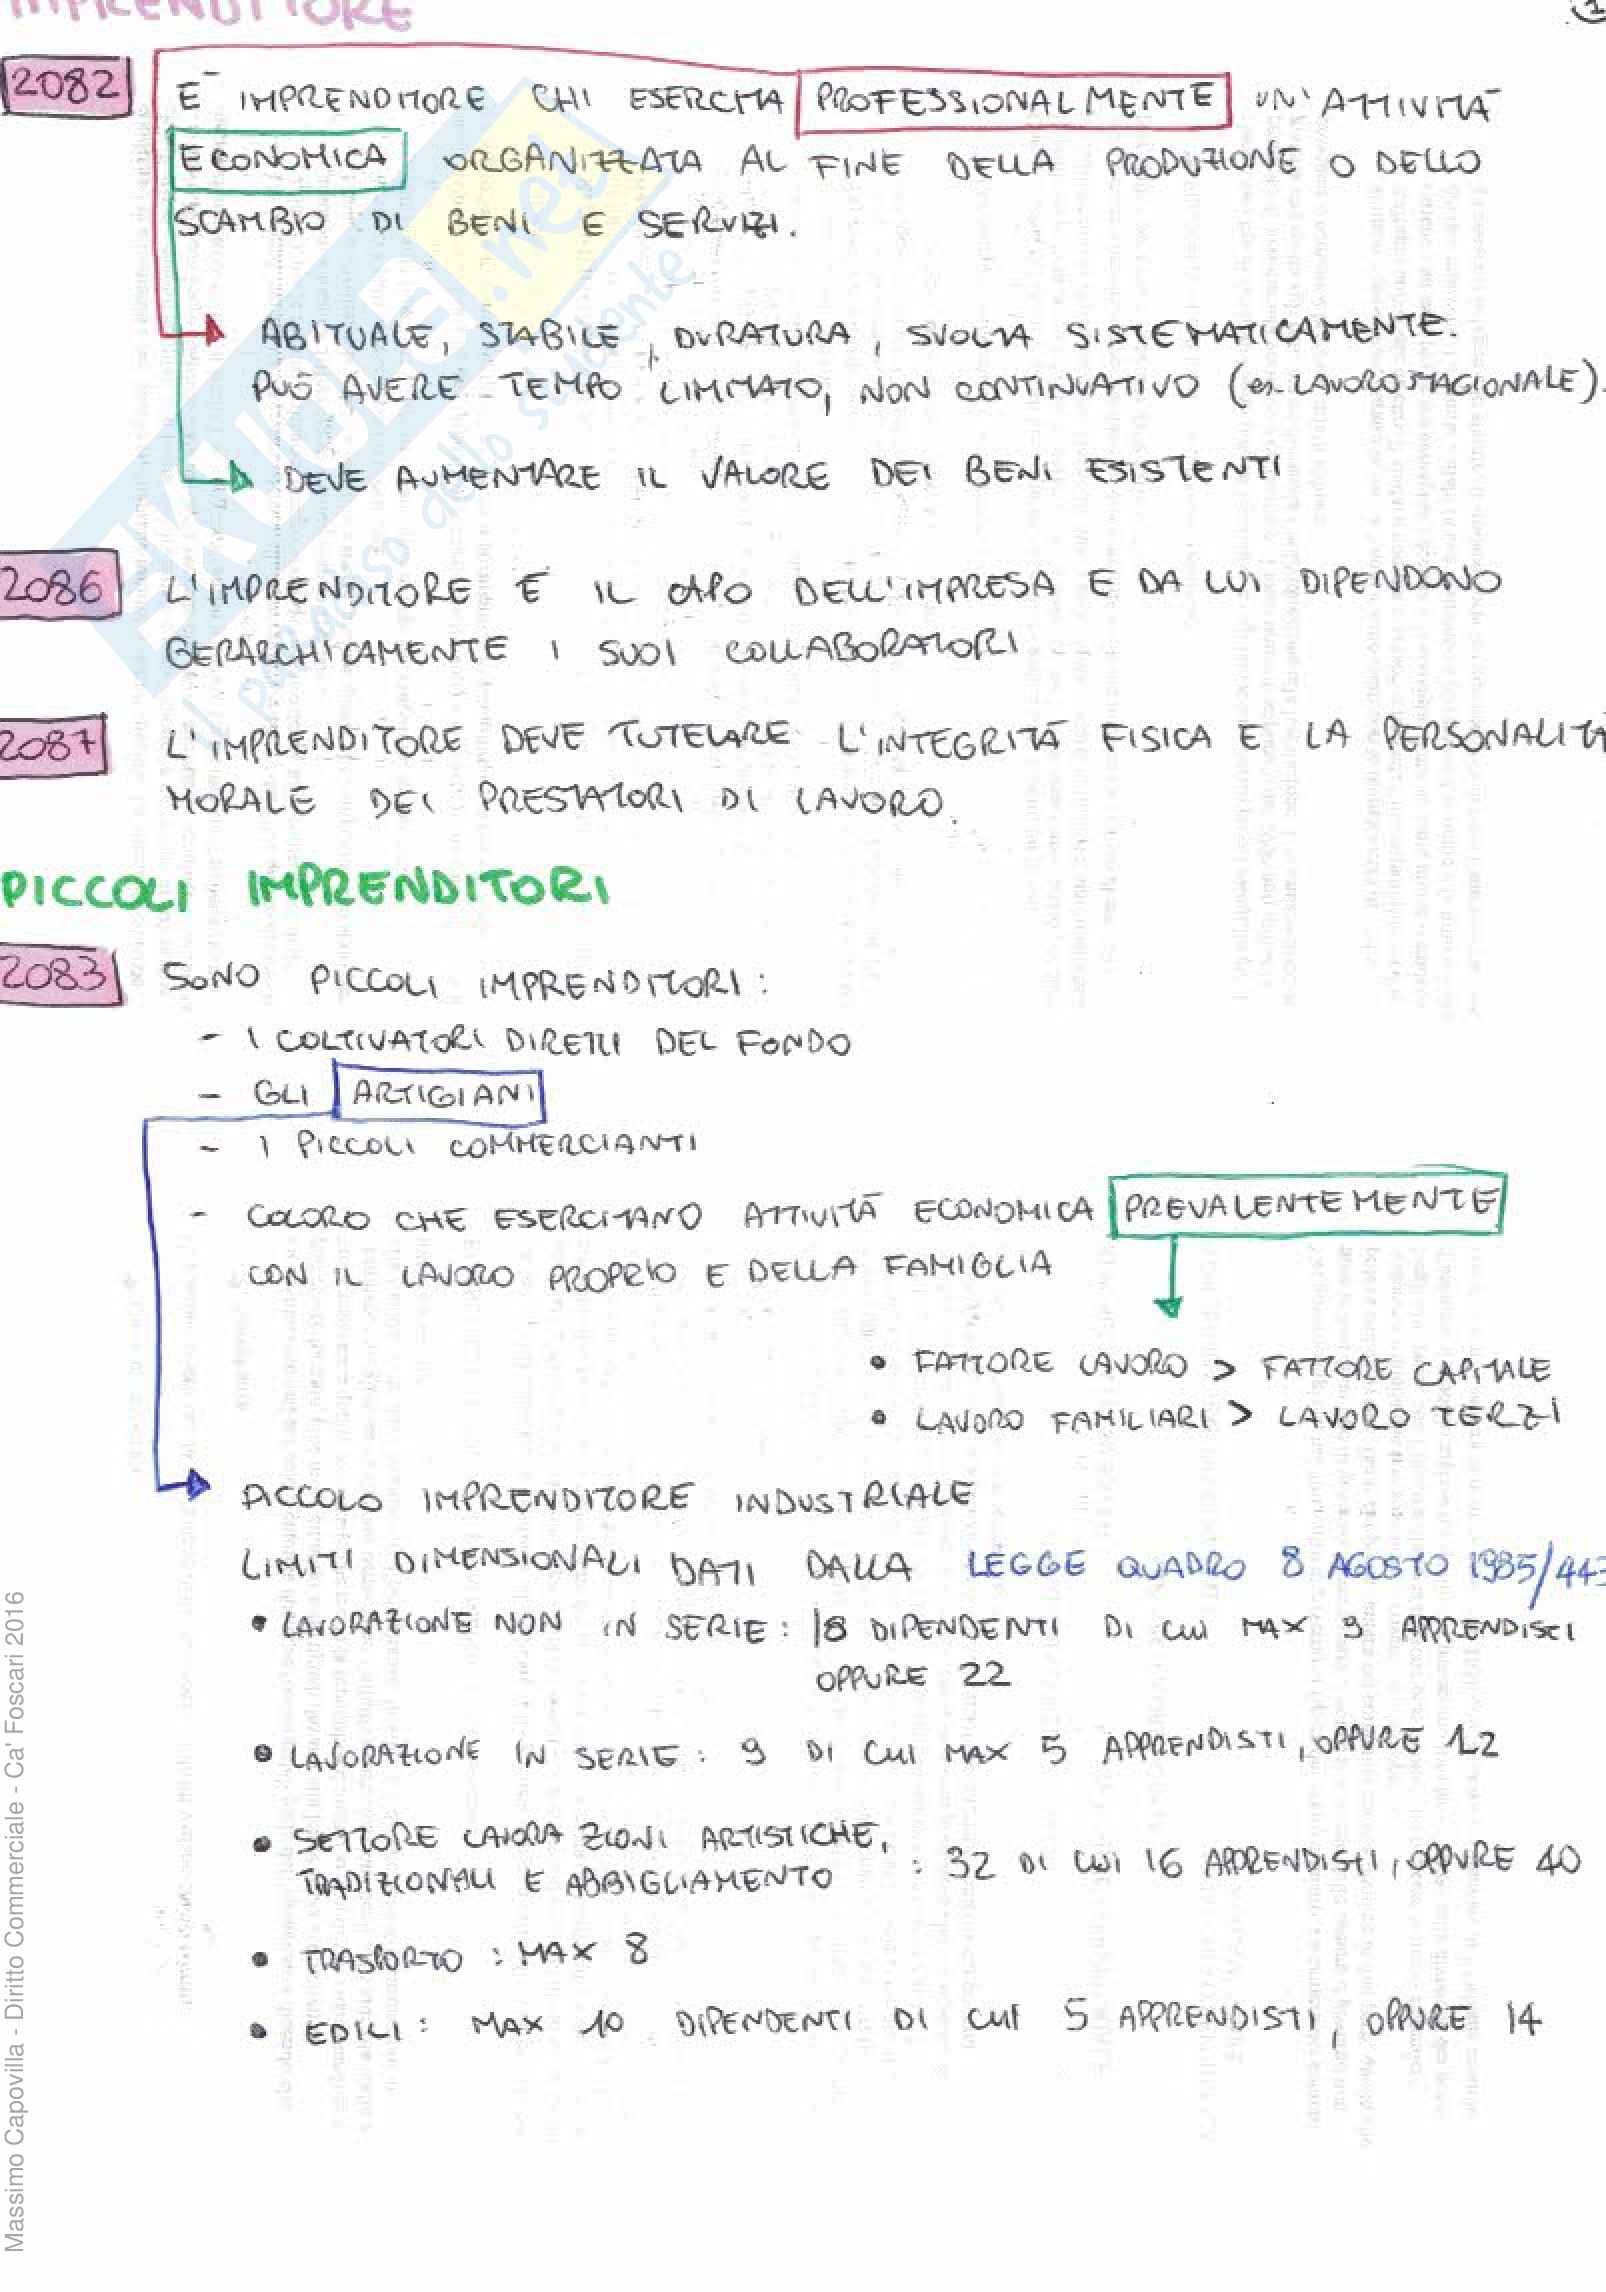 IMPRENDITORE
1
2082
È IMPRENDITORE CHI ESERCITA PROFESSIONALMENTE UN'ATTIVITÀ
ECONOMICA ORGANIZZATA AL FINE DELLA PRODUZIONE O DELLO
SCAMBIO DI BENI E SERVIZI.
ABITUALE, STABILE, DURATURA, SVOLTA SISTEMATICAMENTE.
PUÒ AVERE TEMPO LIMITATO, NON CONTINUATIVO (es. LAVORO STAGIONALE).
DEVE AUMENTARE IL VALORE DEI BENI ESISTENTI
2086
L'IMPRENDITORE È IL CAPO DELL'IMPRESA E DA LUI DIPENDONO
GERARCHICAMENTE I SUOI COLLABORATORI
2087
L'IMPRENDITORE DEVE TUTELARE L'INTEGRITÀ FISICA E LA PERSONALITÀ
MORALE DEI PRESTATORI DI LAVORO.
PICCOLI IMPRENDITORI
2083
SONO PICCOLI IMPRENDITORI:
- I COLTIVATORI DIRETTI DEL FONDO
- GLI ARTIGIANI
- I PICCOLI COMMERCIANTI
- COLORO CHE ESERCITANO ATTIVITÀ ECONOMICA PREVALENTEMENTE
CON IL LAVORO PROPRIO E DELLA FAMIGLIA
• FATTORE LAVORO > FATTORE CAPITALE
• LAVORO FAMILIARI > LAVORO TERZI
PICCOLO IMPRENDITORE INDUSTRIALE
LIMITI DIMENSIONALI DATI DALLA LEGGE QUADRO 8 AGOSTO 1985/443
• LAVORAZIONE NON IN SERIE: 18 DIPENDENTI DI CUI MAX 9 APPRENDISTI
OPPURE 22
• LAVORAZIONE IN SERIE: 9 DI CUI MAX 5 APPRENDISTI, OPPURE 12
• SETTORE LAVORAZIONI ARTISTICHE,
TRADIZIONALI E ABBIGLIAMENTO : 32 DI CUI 16 APPRENDISTI, OPPURE 40
• TRASPORTO : MAX 8
• EDILI: MAX 10 DIPENDENTI DI CUI 5 APPRENDISTI, OPPURE 14
SKUOLA.net
il paradiso dello studente
Massimo Capovilla - Diritto Commerciale - Ca' Foscari 2016